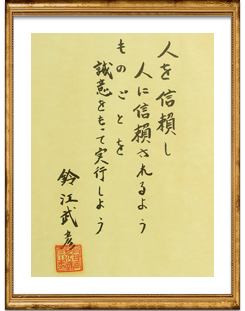 人を信頼し
人に信頼されるよう
ものごとを
誠意をもって実行しよう
鈴江武彦